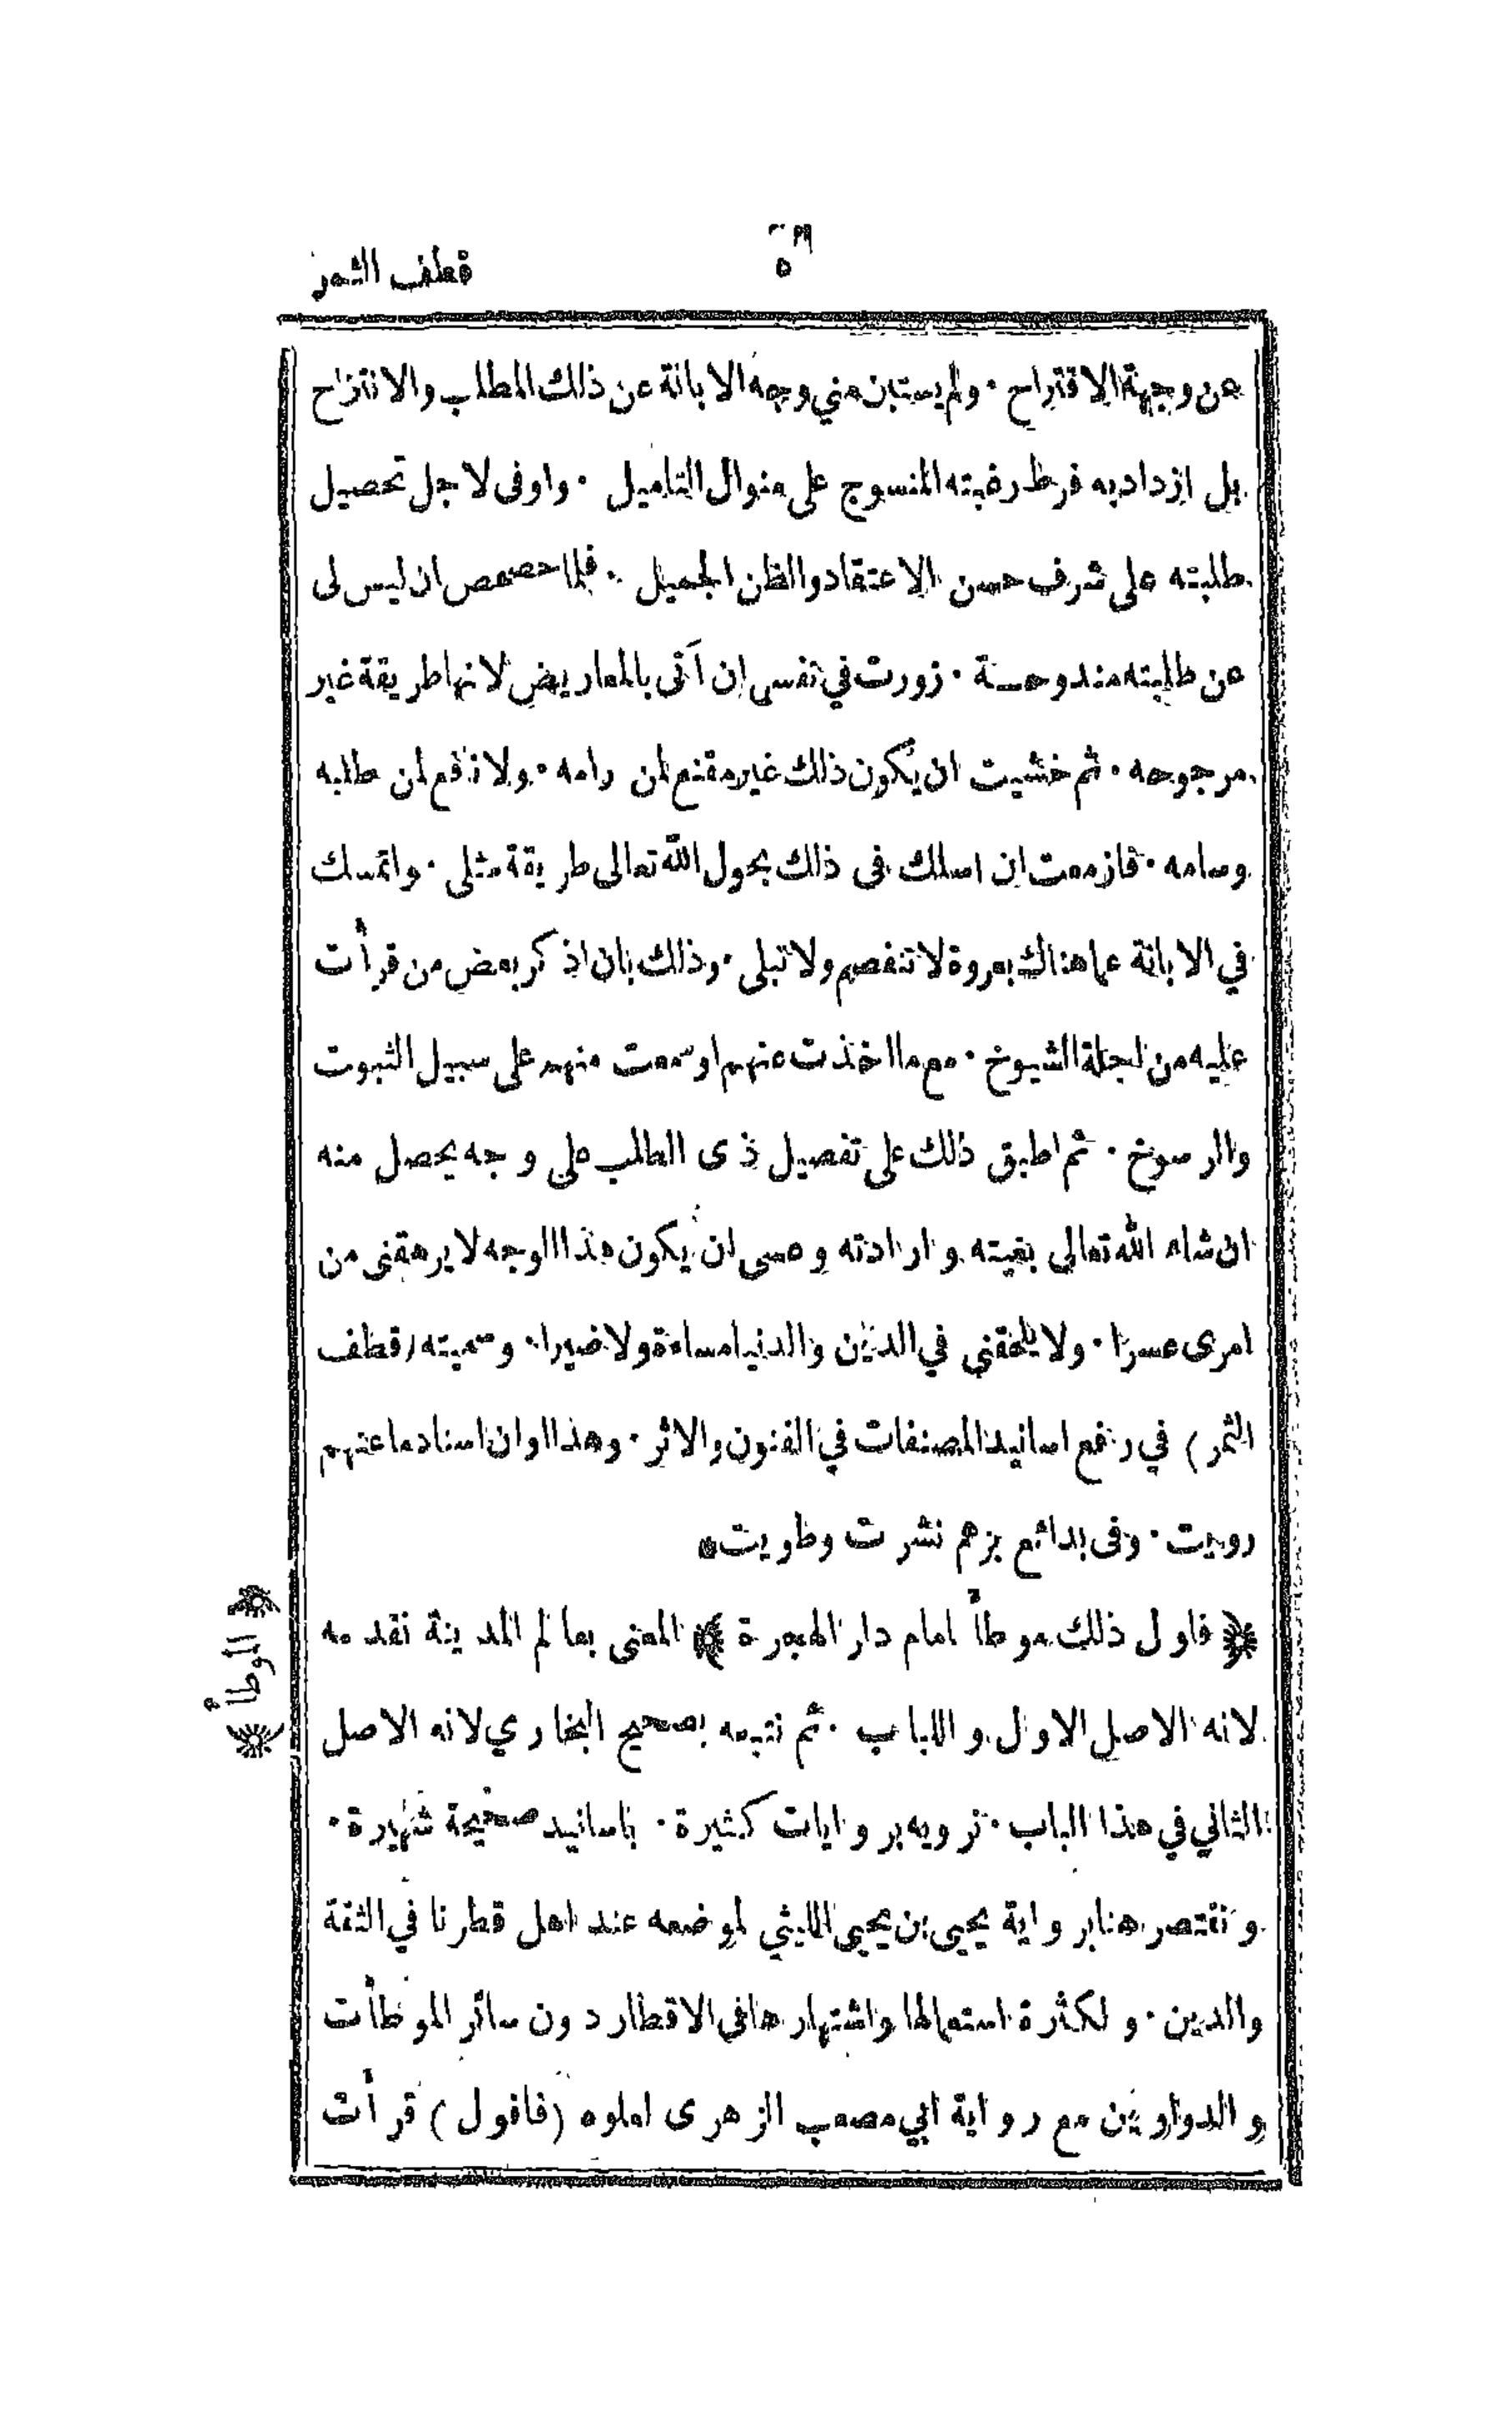 ٥
قطف الثمر
عن وجهة الاقتراح ٠ ولم يستبن مني وجه الابانة عن ذلك المطلب والانتزاح
بل ازداد به فرط رغبته المنسوج على منوال التاميل ٠ واوفى لاجل تحصيل
طلبته على شرف حسن الاعتقاد والظن الجميل ٠ فلما حصحص ان ليس لى
عن طلبته مندوحة ٠ زورت في نفسى ان آتى بالمعاريض لانها طريقة غير
مرجوحه ٠ ثم خشيت ان يكون ذلك غير مقنع لمن رامه ٠ ولا نافع لمن طلبه
وسامه ٠ فازمعت ان اسلك فى ذلك بحول الله تعالى طريقة مثلى ٠ واتمسك
في الابانة عما هناك بعروة لا تنفصم ولا تبلى ٠ وذلك بان اذكر بعض من قرأت
عليه من اجلة الشيوخ ٠ مع ما اخذت عنهم او سمعت منهم على سبيل الثبوت
والرسوخ ٠ ثم اطبق ذلك على تفصيل ذى الطلب على وجه يحصل منه
ان شاء الله تعالى بغيته وارادته وعسى ان يكون هذا الوجه لا يرهقنى من
امرى عسرا ٠ ولا يلحقني في الدين والدنيا مساءة ولا ضيرا ٠ وسميته (قطف
الثمر) في رفع اسانيد المصنفات في الفنون والاثر ٠ وهذا اوان اسناد ما عنهم
رويت ٠ وفى بدائع بزهم نشرت وطويت
﴿ فاول ذلك موطأ امام دار الهجرة ﴾ المعنى بعالم المدينة نقدمه
﴿ الموطأ ﴾
لانه الاصل الاول واللباب ٠ ثم نتبعه بصحيح البخاري لانه الاصل
الثاني في هذا الباب ٠ نرويه بروايات كثيرة ٠ باسانيد صحيحة شهيرة ٠
ونقتصر هنا برواية يحيى بن يحيى الليثي لموضعه عند اهل قطرنا في الثقة
والدين ٠ ولكثرة استعمالها واشتهارها في الاقطار دون سائر الموطأت
والدواوين مع رواية ابي مصعب الزهرى لعلوه (فاقول) قرأت